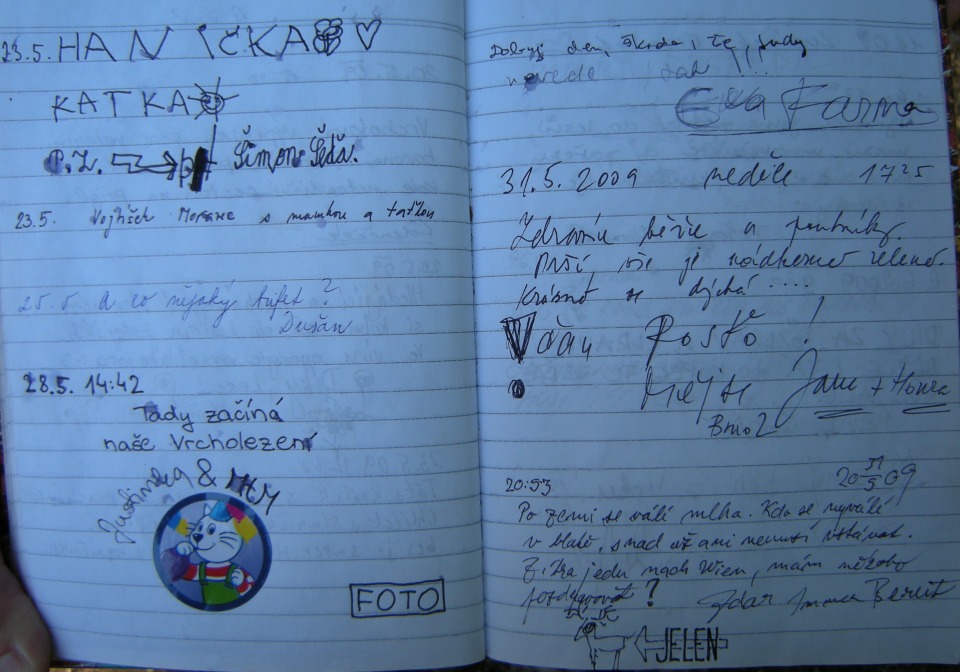 23.5. HANIČKA
KATKA
P.Z. Šimon Šéda.
23.5. Vojtíšek s mamkou a taťkou
25.5. A co nějaký bufet?
Dušan
28.5. 14:42
Tady začíná
naše Vrcholezení
& 
FOTO
Dobrý den, škoda, že tudy
nevede tak !!...
Eva Farma
31.5.2009 neděle 17 25
Zdravíme běžce a poutníky
Prší, vše je nádherně zelené.
Krásně se dýchá ....
!
Mějte Jana + Honza
Brno 2
20:53 20 31/5 09
Po zemi se válí mlha. Kdo se nyválí
v blátě, snad už ani nemusí vstávat.
Zítra jedu nach Wien, mám někoho
pozdravovat?
Zdar
JELEN